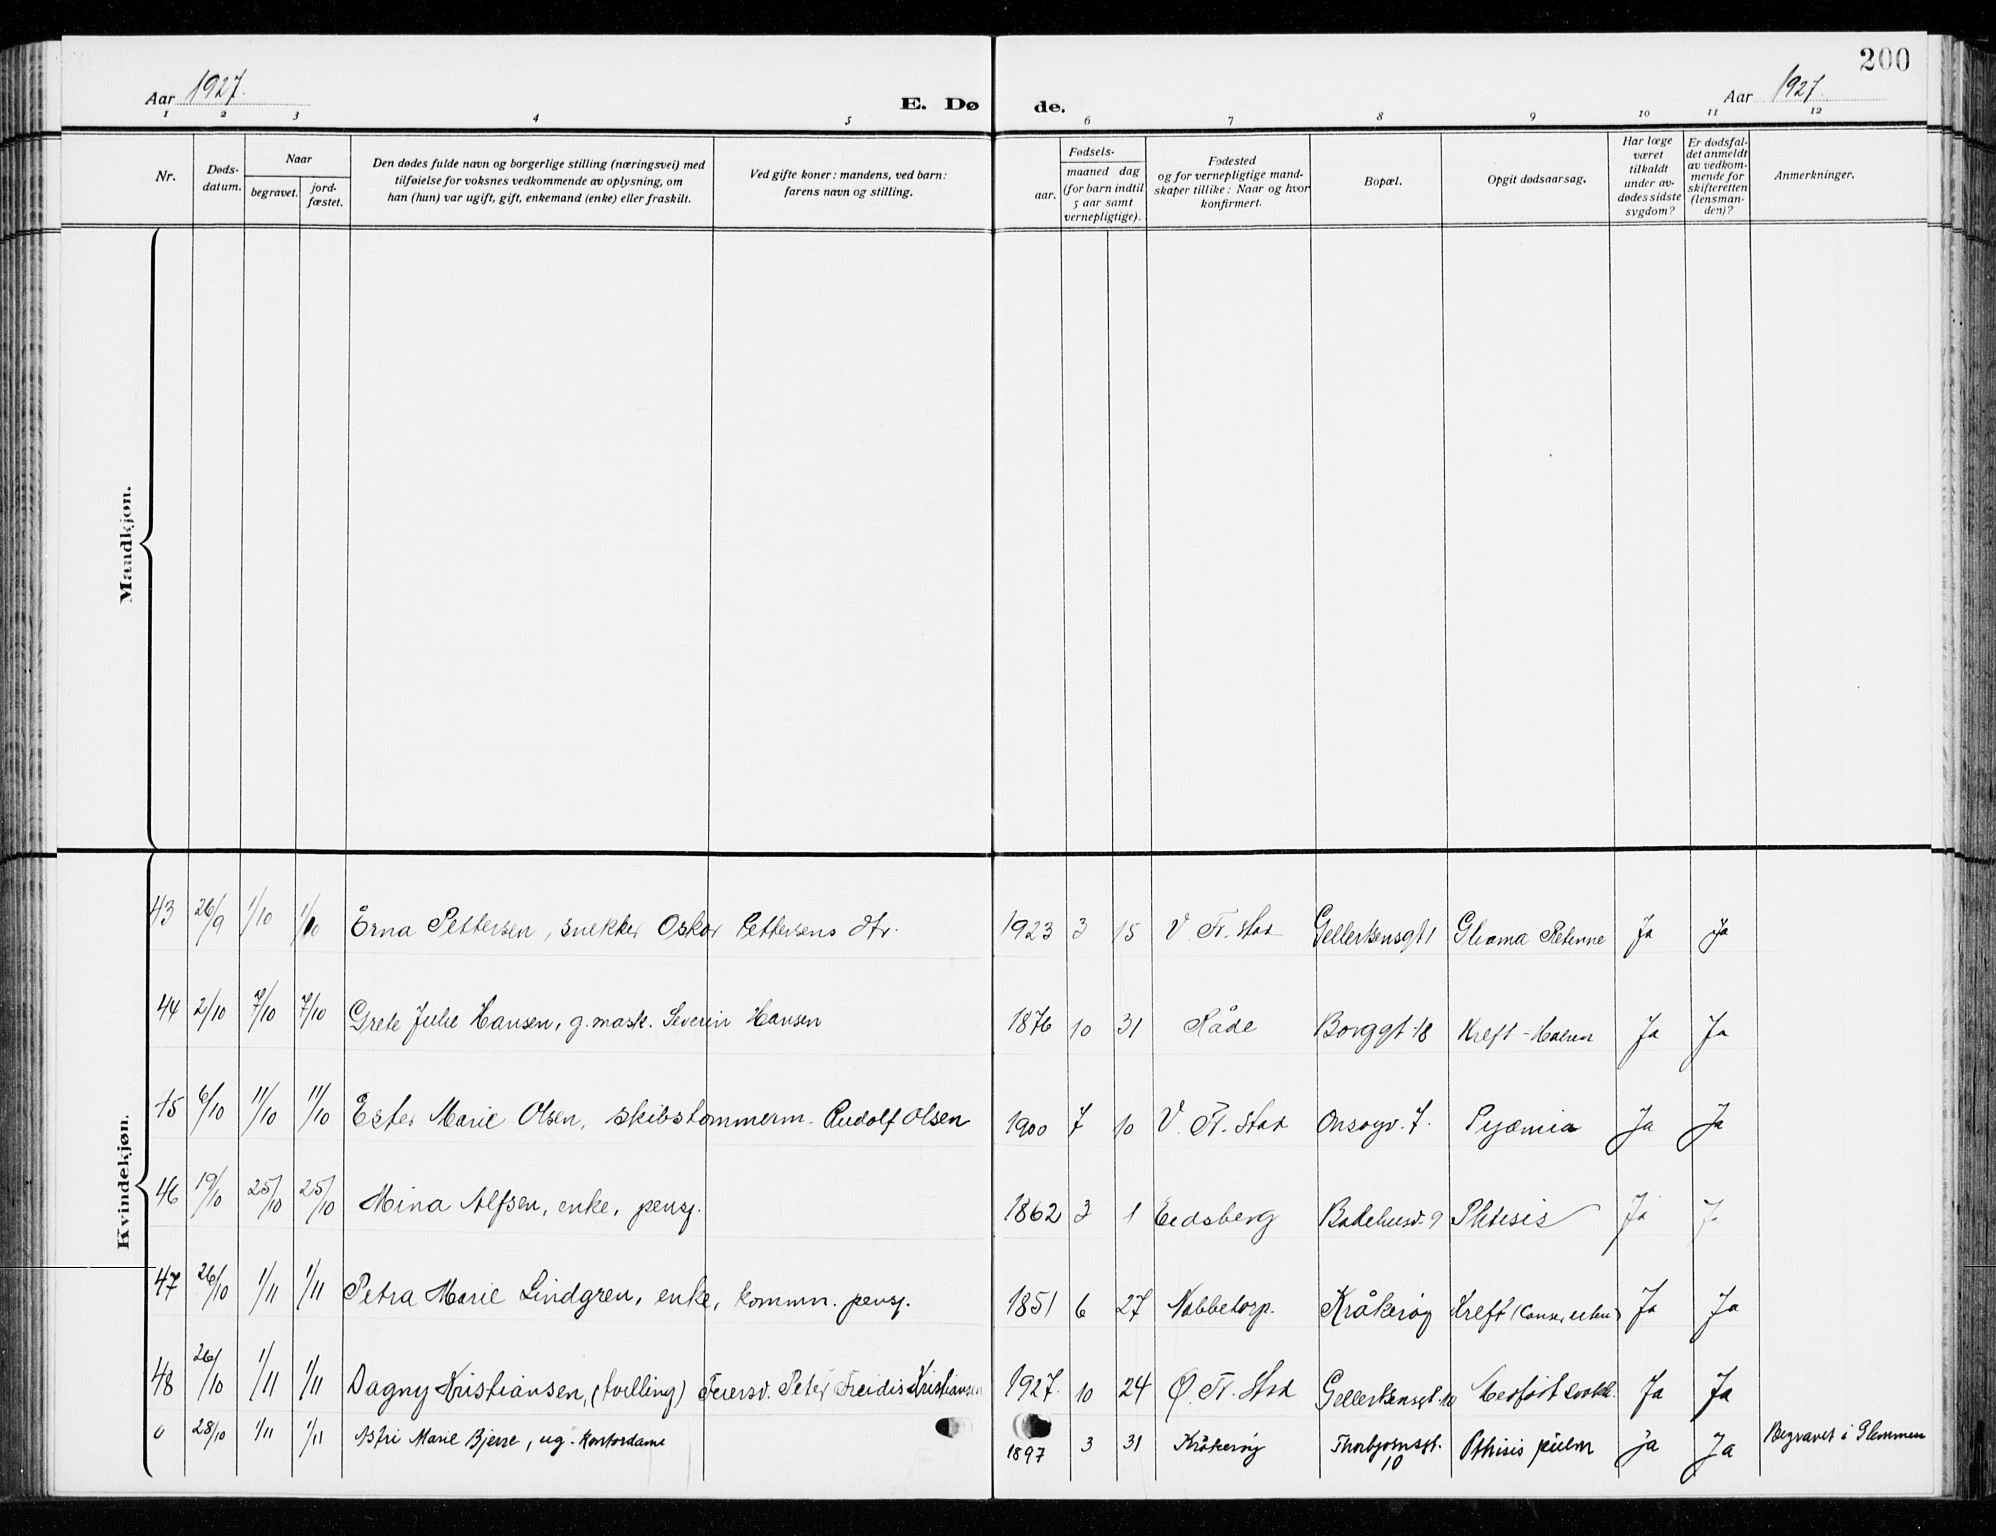 200
Aar 1927.
E. Dø
de.
Aar 1927.
1 2 3 4 5 6 7 8 9 10 11 12
Nr.
Døds-
datum.
Naar
begravet.
jord-
fæstet.
Den dødes fulde navn og borgerlige stilling (næringsvei) med
tilføielse for voksnes vedkommende av oplysning, om
han (hun) var ugift, gift, enkemand (enke) eller fraskilt.
Ved gifte koner: mandens, ved barn:
farens navn og stilling.
Fødsels-
aar.
maaned dag
(for barn indtil
5 aar samt
vernepligtige).
Fødested
og for vernepligtige mand-
skaper tillike: Naar og hvor
konfirmert.
Bopæl.
Opgit dødsaarsag.
Har læge
været
tilkaldt
under av-
dødes sidste
sygdom?
Er dødsfal-
det anmeldt
av vedkom-
mende for
skifteretten
(lensman-
den)?
Anmerkninger.
Mandkjøn.
Kvindekjøn.
43 26/9 1/10 1/10 Erna Pettersen, snekker Oskar Pettersens dtr. 1923 3 15 V. Fr. stad Gellertsensgt 1 Glioma Retinne Ja Ja
44 2/10 7/10 7/10 Grete Julie Hansen, g. mask. Severin Hansen 1876 10 31 Råde Borggt 18 Kreft - Ja Ja
45 6/10 11/10 11/10 Ester Marie Olsen, skibstømmerm. Rudolf Olsen 1900 7 10 V. Fr. Stad Onsøyv. 7. Pyæmia Ja Ja
46 19/10 25/10 25/10 Mina Alfsen, enke, pensj. 1862 3 1 Eidsberg Badehusv. 9 Phtisis Ja Ja
47 26/10 1/11 1/11 Petra Marie Lindgren, enke, kommn. pensj. 1851 6 27 Nabbetorp. Kråkerøy Kreft Ja Ja
48 26/10 1/11 1/11 Dagny Kristiansen, (tvilling) Feiersv. Peter Kristiansen 1927. 10 24 Ø. Fr. Stad Gellertsensgt. Medfødt svakh. Ja Ja
0 28/10 1/11 1/11 Astri Marie Bjerre, ug. Kontordame 1897 3 31 Kråkerøy Thorbjørnsgt. 10 Pthisis pulm Ja Ja Begravet i Glemmen